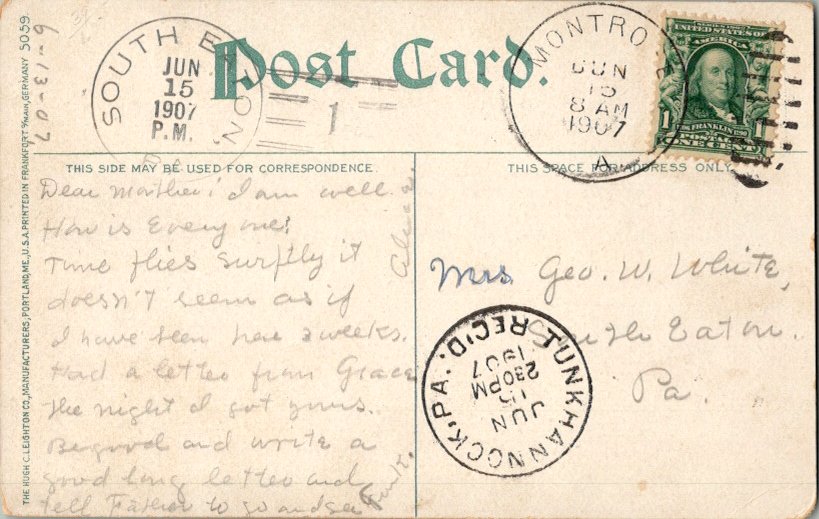 Post Card.
SOUTH EATON,
PA.
JUN
15
1907
P.M.
1
MONTROSE
JUN
15
8 AM
1907
PA
UNITED STATES OF
AMERICA
1
FRANKLIN
POSTAGE
ONE CENT
1
6-13-07
THE HUGH C. LEIGHTON CO., MANUFACTURERS, PORTLAND, ME., U.S.A. PRINTED IN FRANKFORT o/MAIN, GERMANY 5059
THIS SIDE MAY BE USED FOR CORRESPONDENCE
THIS SPACE FOR ADDRESS ONLY
Dear Mother; I am well.
How is Every one?
Time flies surftly it
doesn't seem as if
I have been here 2 weeks.
Had a letter from Grace
the night I got yours.
Be good and write a
good long letter and
tell Father to go and see
Frank.
Mrs. Geo. W. White,
South Eaton.
Pa.
TUNKHANNOCK, PA. REC'D.
JUN
15
230PM
1907